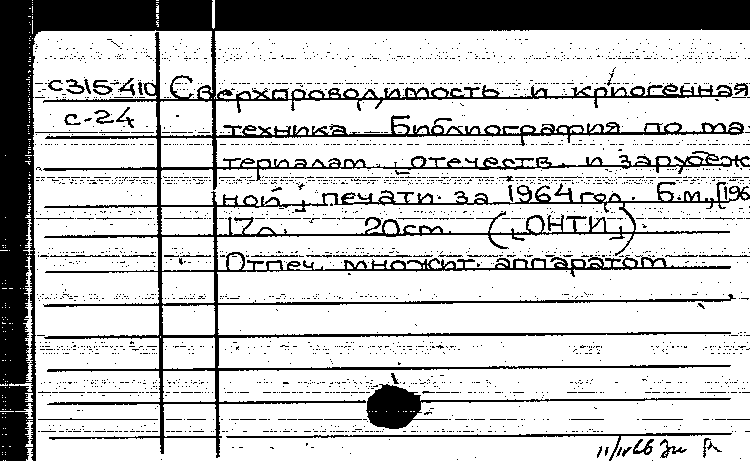 с315-410 Сверхпроводимость и криогенная
с-24 техника. Библиография по ма-
териалам ⌞отечеств. и зарубеж
ной⌟ печати за 1964 год. Б.м., [196
17л. 20см. (⌞ОНТИ⌟).
Отпеч. множит. аппаратом